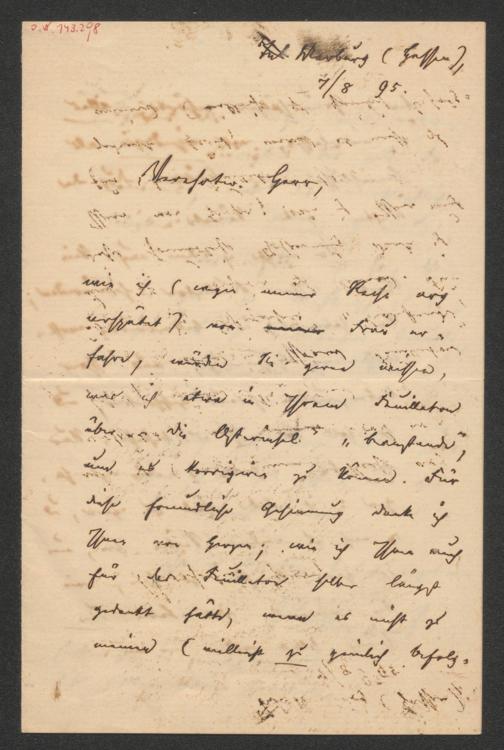 Marburg (Hessen),
7/8 95.
Verehrter Herr,
wie ich (wegen meiner Reise arg
verspätet) von Frau er=
fahre, würden Sie gerne wissen,
was ich etwa in Ihrem Feuilleton
über die Osterinsel „beanstande",
um es korrigieren zu können. Für
diese freundliche Gesinnung danke ich
Ihnen von Herzen; wie ich Ihnen auch
für das Feuilleton selber längst
gedankt hätte, wenn es nicht zu
meiner (vielleicht zu peinlich befolg=